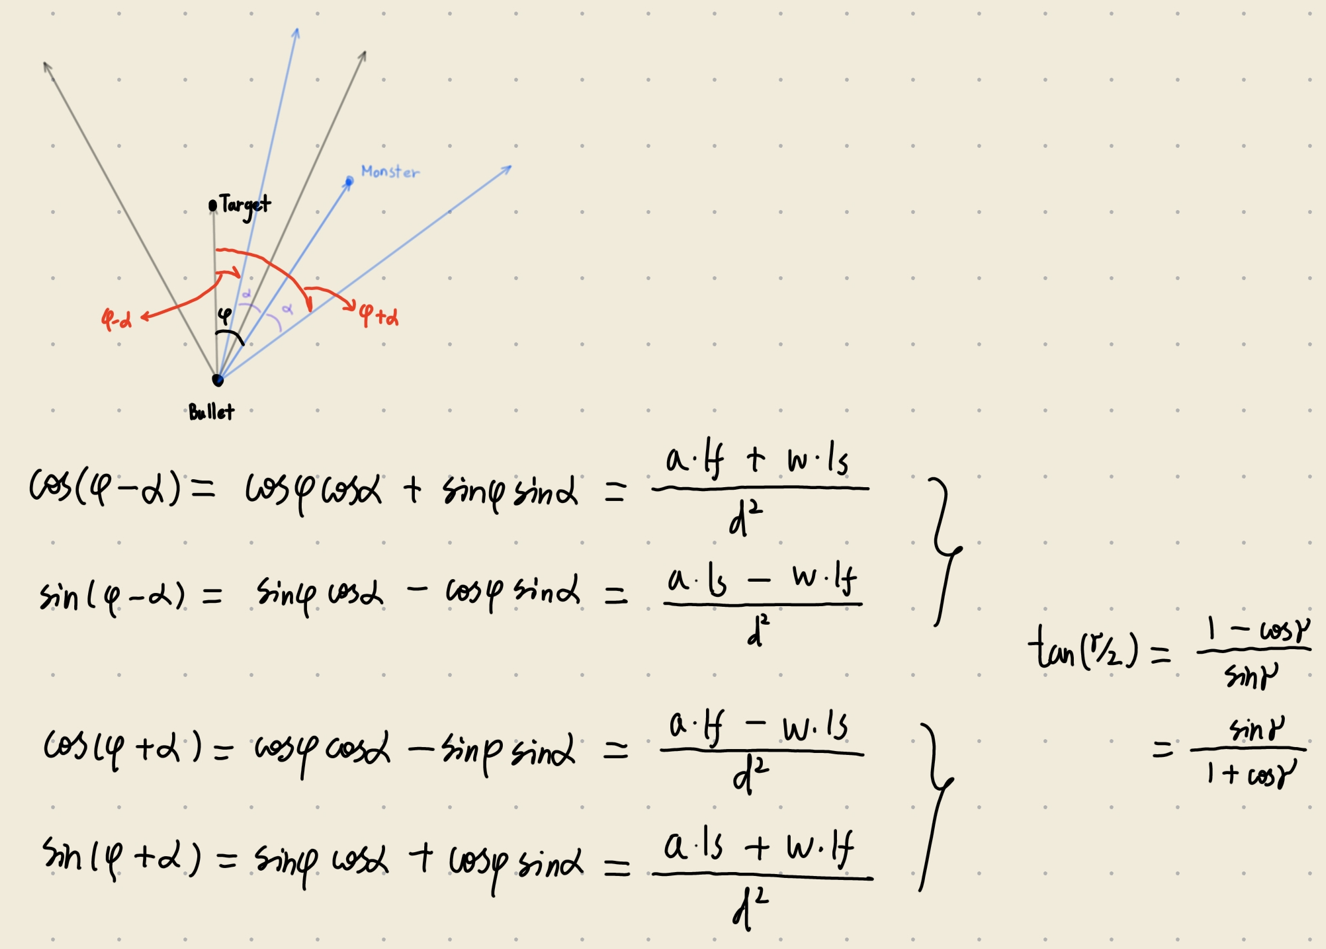 Monster
Target
α
α
φ-α
φ
φ+α
Bullet
cos(φ-α) = cosφ cosα + sinφ sinα = (a·lf + w·ls) / d²
sin(φ-α) = sinφ cosα - cosφ sinα = (a·ls - w·lf) / d²
tan(γ/2) = (1 - cosγ) / sinγ
= sinγ / (1 + cosγ)
cos(φ+α) = cosφ cosα - sinφ sinα = (a·lf - w·ls) / d²
sin(φ+α) = sinφ cosα + cosφ sinα = (a·ls + w·lf) / d²